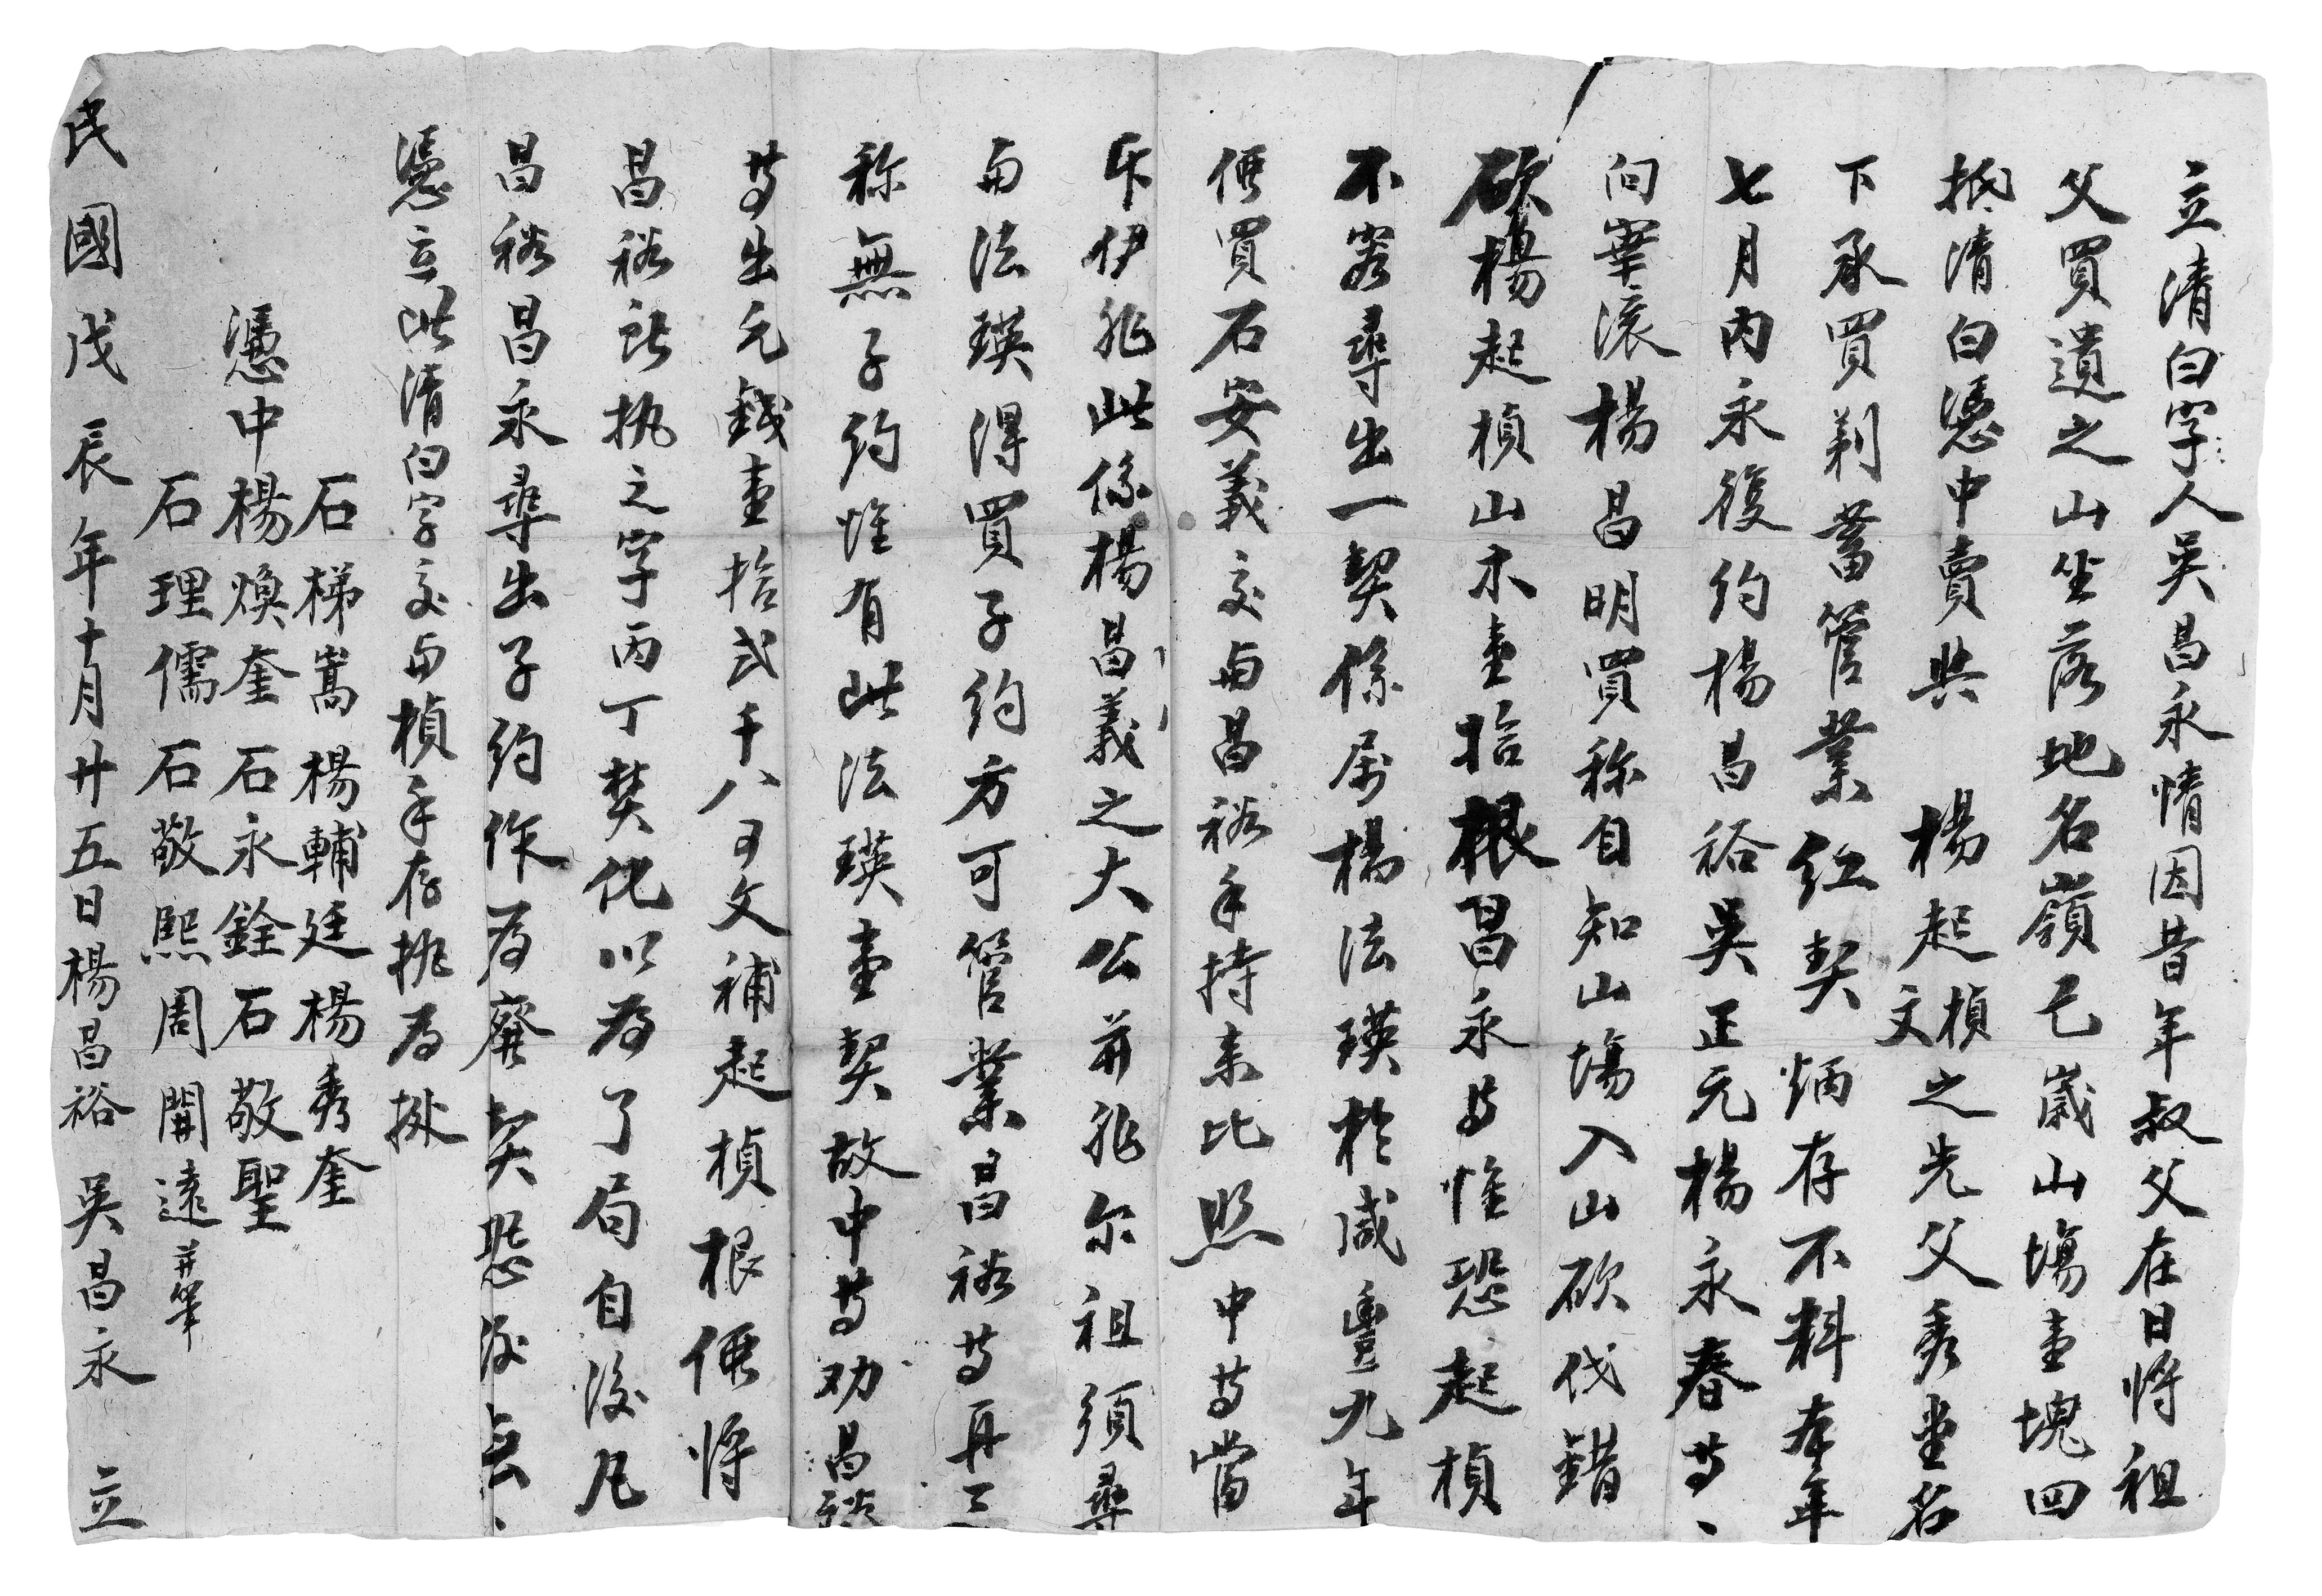 立清白字人吴昌永情因昔年叔父在日将祖
父買遺之山坐落地名嶺乜崴山塲壹塊四
抵清白憑中賣與　楊起楨文之先父秀堂名
下承買剃蓄管業红契炳存不料本年
七月内永復约楊昌裕吴正元楊永春等、
问寀滚楊昌明買称自知山塲入山砍伐錯
砍楊起楨山木壹拾根昌永等惟恐起楨
不容尋出一契係属楊法瑛於咸豐九年
便買石安義交与昌裕手持来比照中等當
斥伊非此係楊昌義之大公并非尔祖須尋
与法瑛得買子约方可管業昌裕等再三
称無子约惟有此法瑛壹契故中等劝昌裕
等出元錢壹拾弍千八百文補起楨根便将
昌裕所执之字丙丁焚化以為了局自後凡
昌裕昌永尋出子约作為廢契恐後無、
憑立此清白字交与楨手存执為據
石梯嵩　楊輔廷　楊秀奎
憑中楊煥奎　石永銓　石敬聖
石理儒　石敬熙　周開遠并筆
民國戊辰年十月廿五日楊昌裕　吴昌永　立